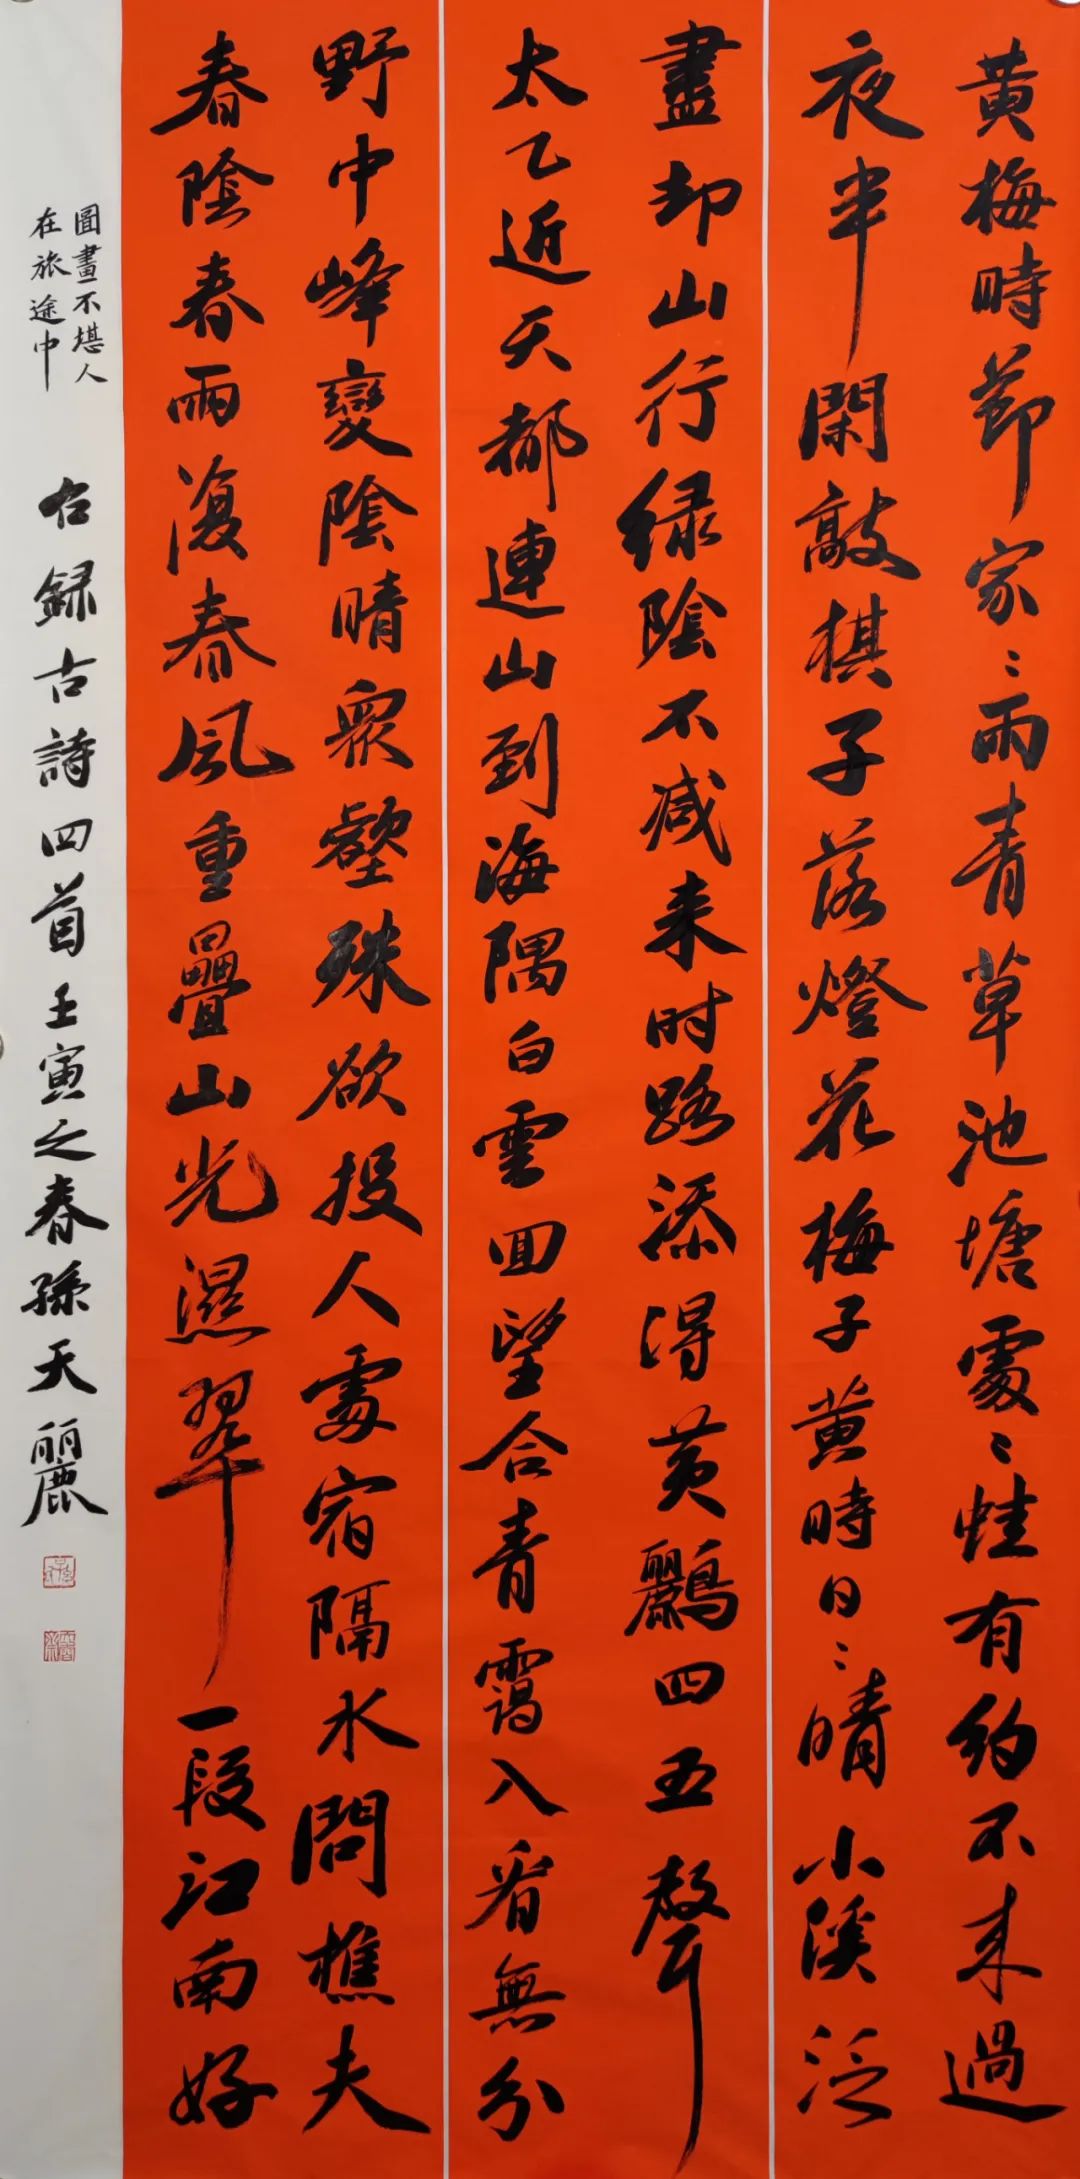 黄梅時節家〻雨青草池塘處〻蛙有約不来過
夜半閑敲棋子落燈花梅子黄時日〻晴小溪泛
盡却山行緑陰不减来时路添得黄鸝四五聲
太乙近天都連山到海隅白雲回望合青靄入看無分
野中峰變陰晴衆壑殊欲投人處宿隔水問樵夫
春陰春雨復春風重疊山光濕翠一段江南好
圖畫不堪人
在旅途中
右録古詩四首壬寅之春孫天麗